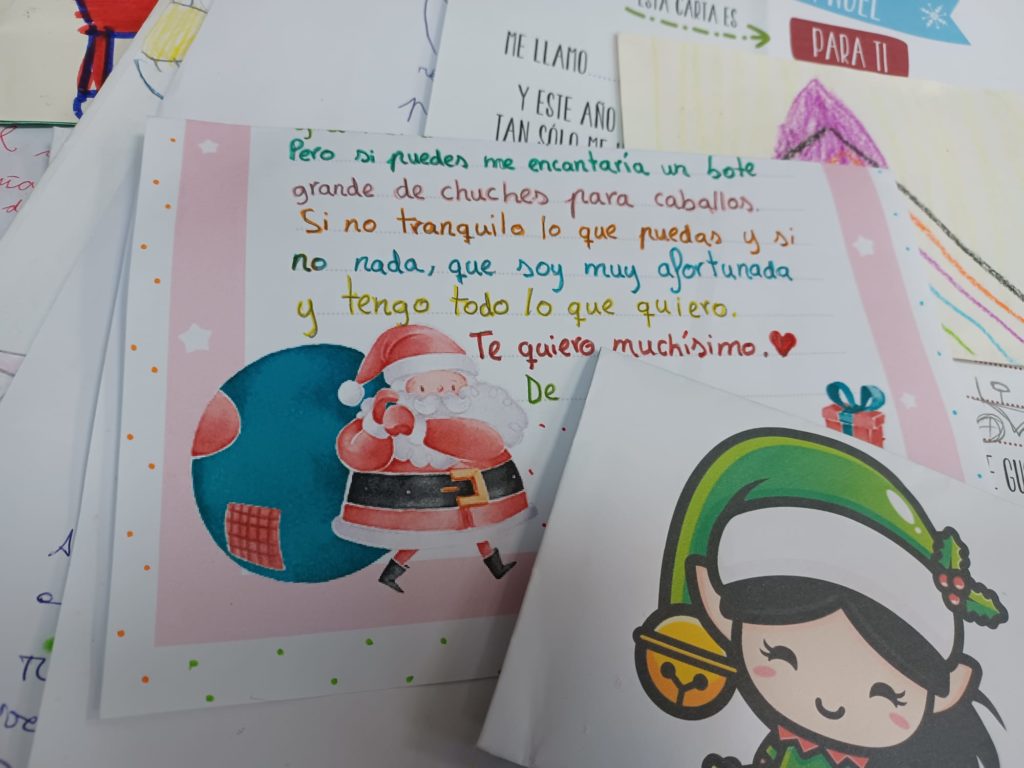 ESTA CARTA ES
NOEL
PARA TI
ME LLAMO
Y ESTE AÑO
TAN SÓLO ME
Pero si puedes me encantaría un bote
grande de chuches para caballos.
Si no tranquilo lo que puedas y si
no nada, que soy muy afortunada
y tengo todo lo que quiero.
Te quiero muchísimo.
De